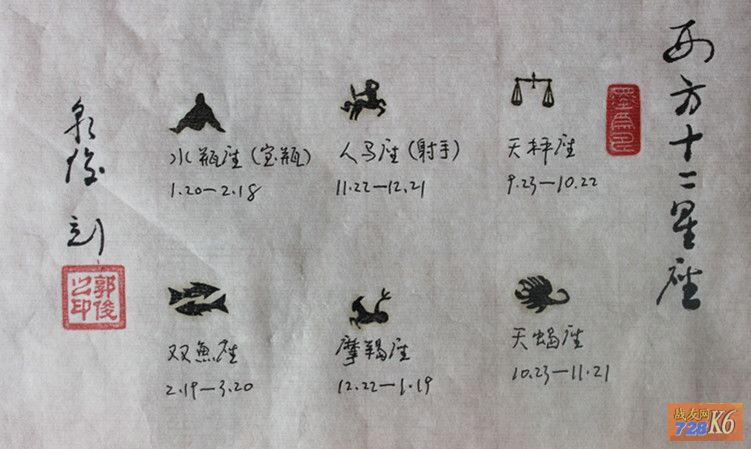 西方十二星座
天秤座
9.23—10.22
天蝎座
10.23—11.21
人马座(射手)
11.22—12.21
摩羯座
12.22—1.19
水瓶座(宝瓶)
1.20—2.18
双魚座
2.19—3.20
郭俊之印
战友网
728K6